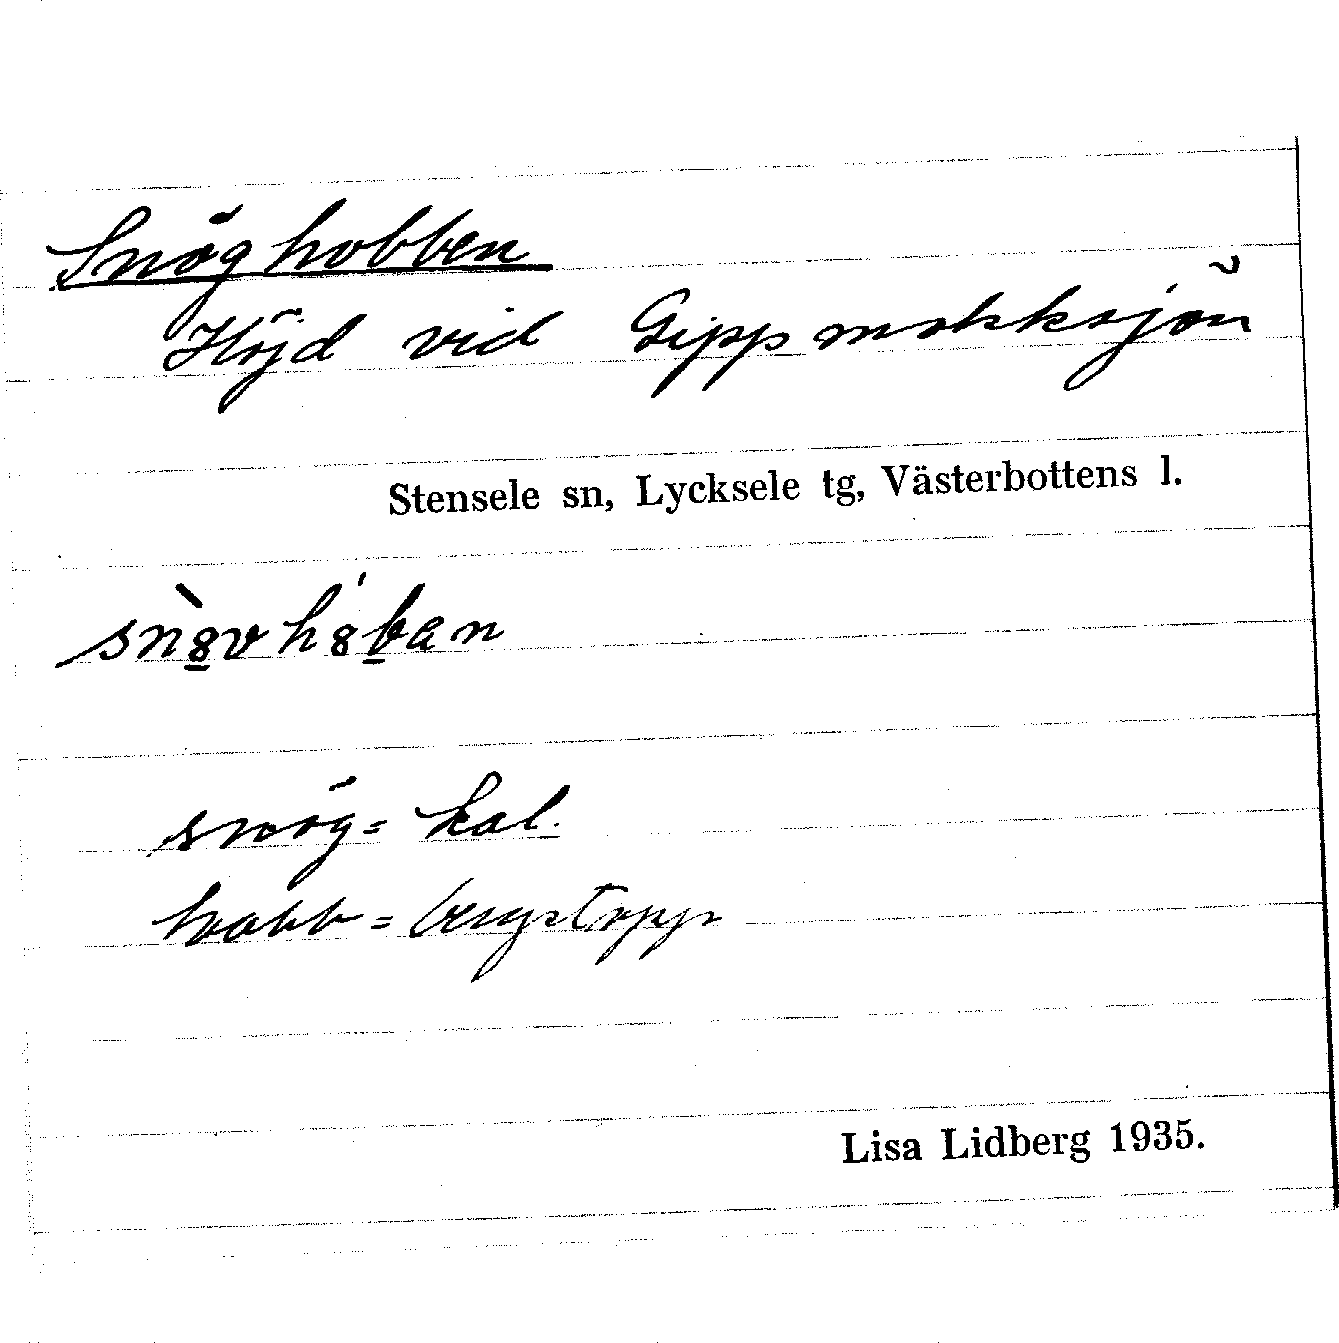 Snöghobben
Höjd vid Gippmokksjön
Stensele sn, Lycksele tg, Västerbottens l.
snö̀vhȯban
snög = kal.
hobb = bergstopp
Lisa Lidberg 1935.